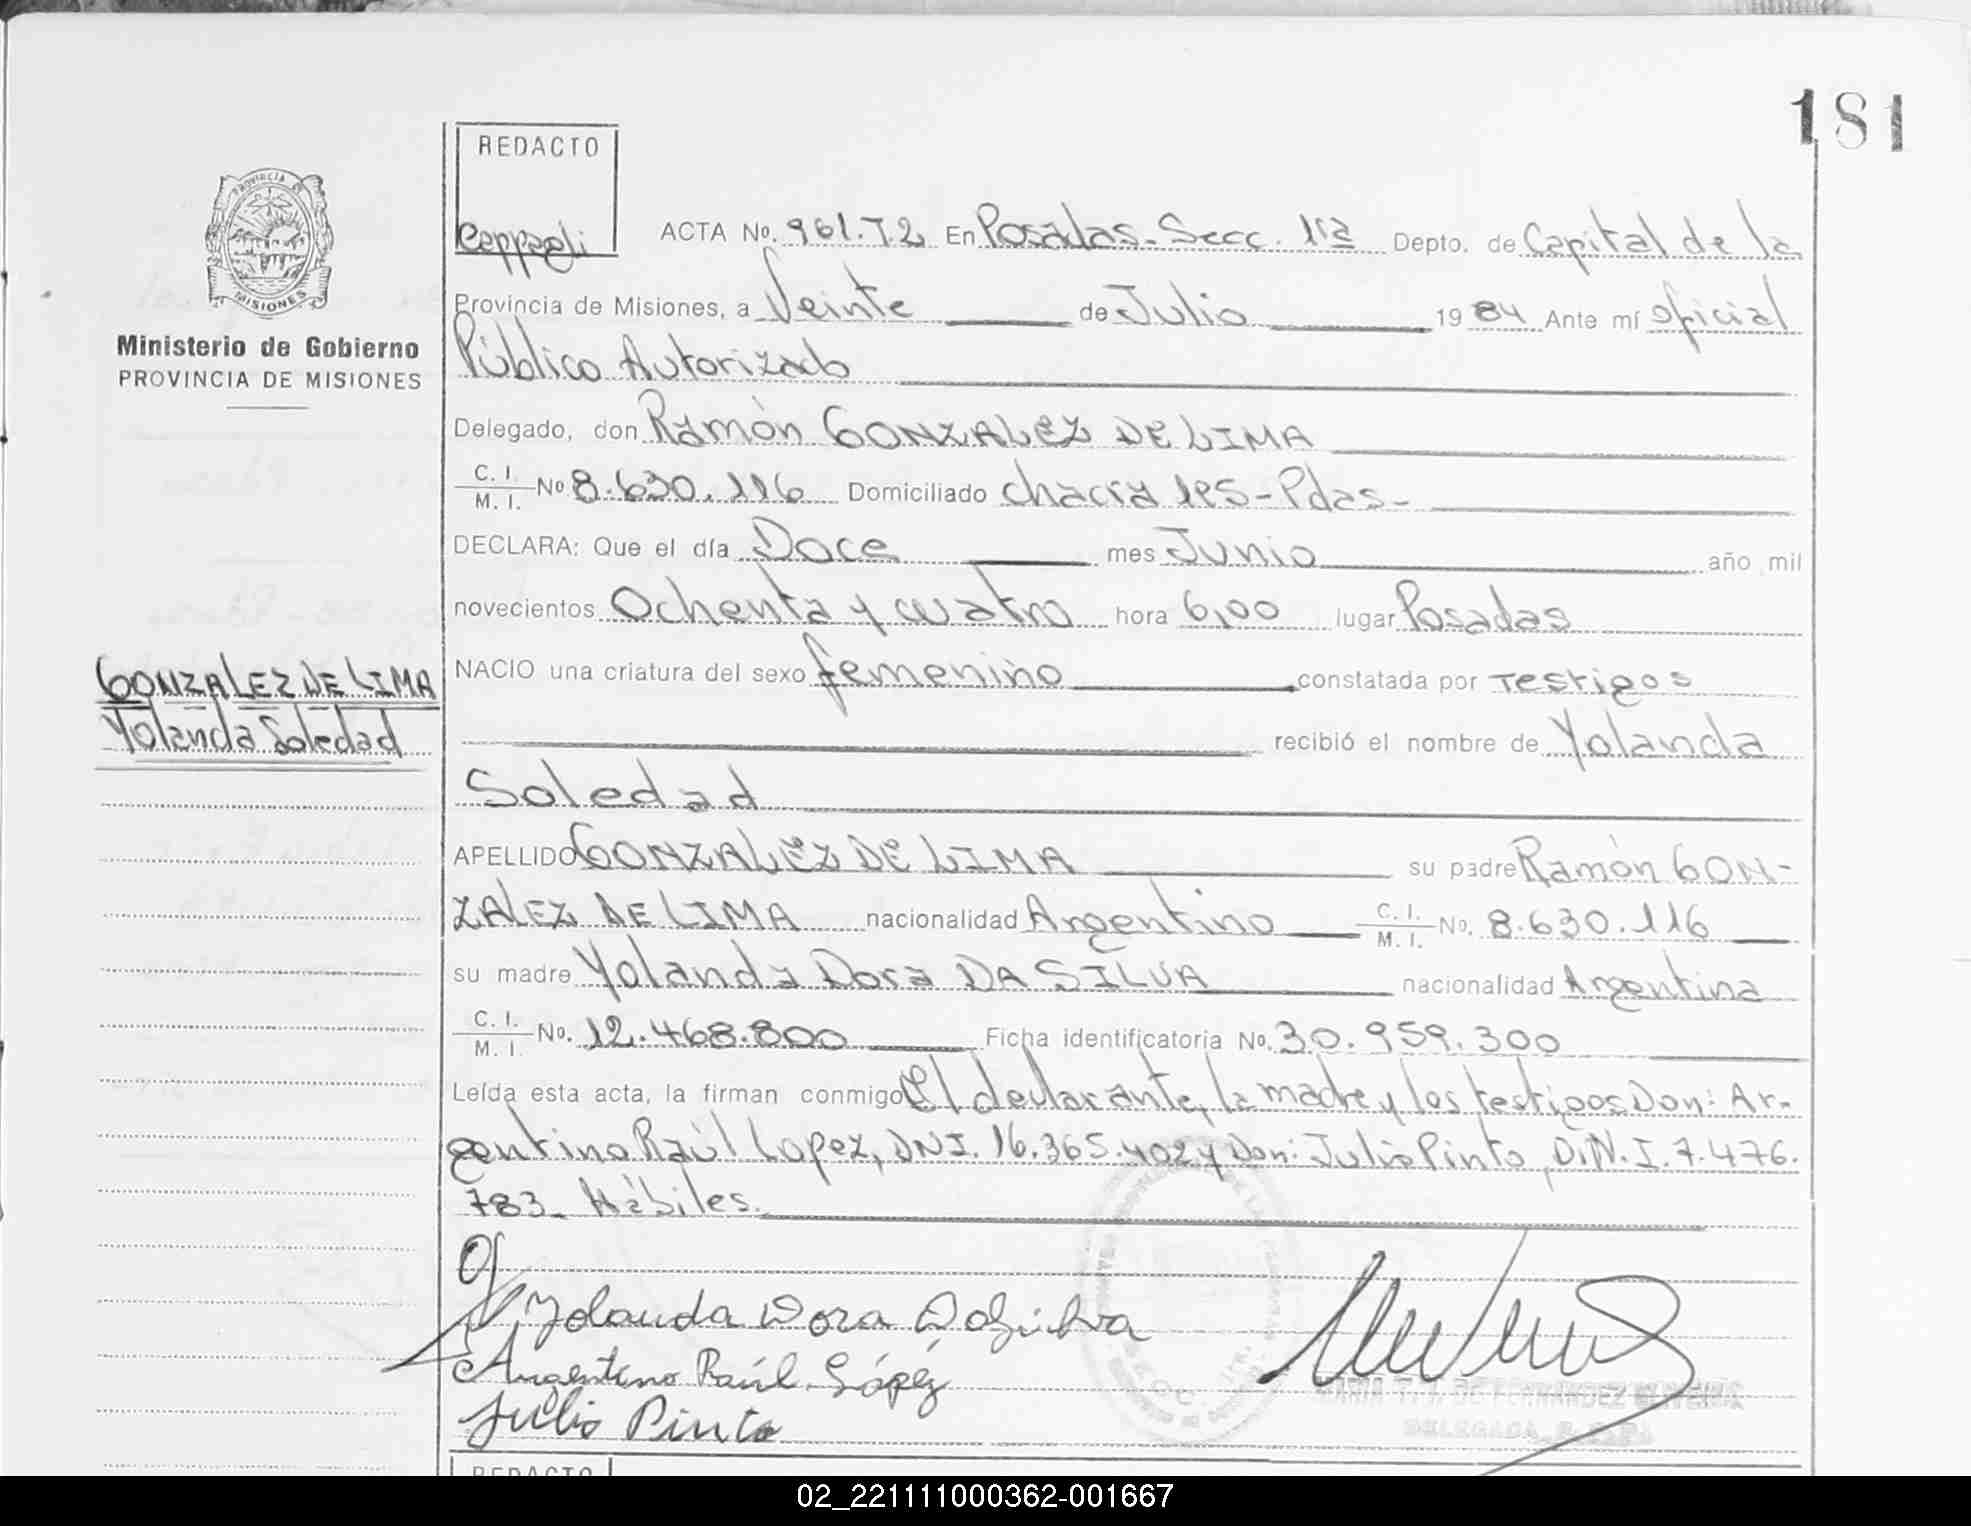 181
REDACTO
Ceppagli
PROVINCIA DE
MISIONES
Ministerio de Gobierno
PROVINCIA DE MISIONES
ACTA No. 961.T2 En Posadas.- Secc. 1ra Depto. de Capital de la
Provincia de Misiones, a Veinte de Julio 1984 Ante mí oficial
Público Autorizado
Delegado, don Ramón GONZALEZ DE LIMA
C. I. / M. I. No 8.630.116 Domiciliado chacra 185-Pdas-
DECLARA: Que el día Doce mes Junio año mil
novecientos Ochenta y cuatro hora 6,00 lugar Posadas
NACIO una criatura del sexo femenino constatada por Testigos
recibió el nombre de Yolanda
Soledad
GONZALEZ DE LIMA
Yolanda Soledad
APELLIDO GONZALEZ DE LIMA su padre Ramón GON-
ZALEZ DE LIMA nacionalidad Argentino C. I. / M. I. No. 8.630.116
su madre Yolanda Dora DA SILVA nacionalidad Argentina
C. I. / M. I. No. 12.468.800 Ficha identificatoria No. 30.959.300
Leída esta acta, la firman conmigo El declarante, la madre y los testigos Don: Ar-
gentino Raúl Lopez, DNI. 16.365.402 y Don: Julio Pinto, D.N.I. 7.476.
783_ Hábiles.
Yolanda Dora Da Silva
Argentino Raúl López
Julio Pinto
DE FERNANDEZ
DELEGADA
REDACTO
02_221111000362-001667